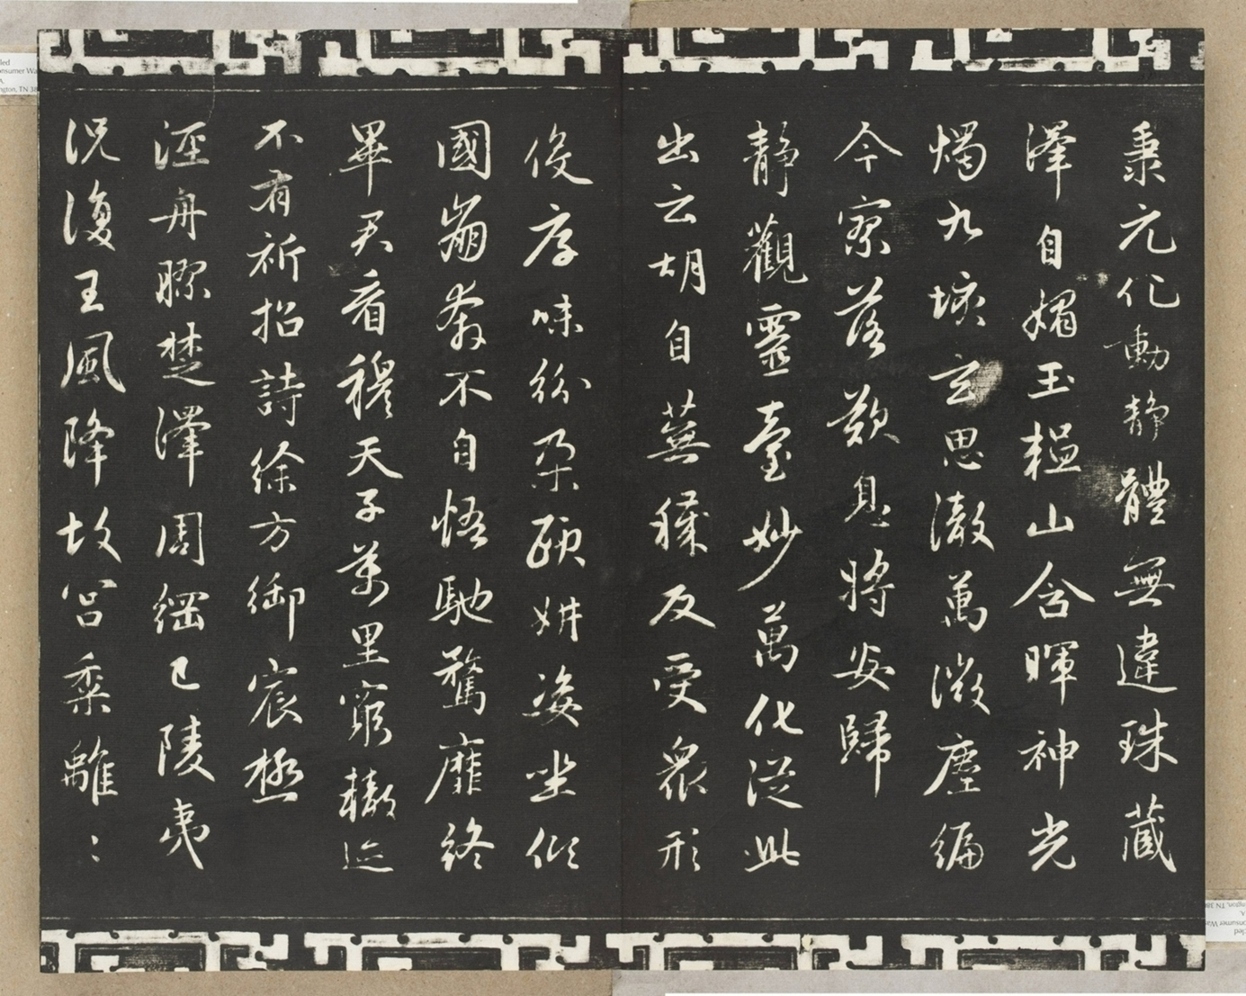 秉元化動靜體無違珠藏
澤自媚玉韞山含暉神光
燭九垓玄思徹萬微塵編
今寥落歎息將安歸
靜觀靈臺妙萬化從此
出云胡自蕪穢反受眾形
役厚味紛朵頤妍姿坐傾
國崩奔不自悟馳騖靡終
畢君看穆天子万里窮轍迹
不有祈招詩徐方御宸極
涇舟膠楚澤周綱已陵夷
況復王風降故宮黍離〻